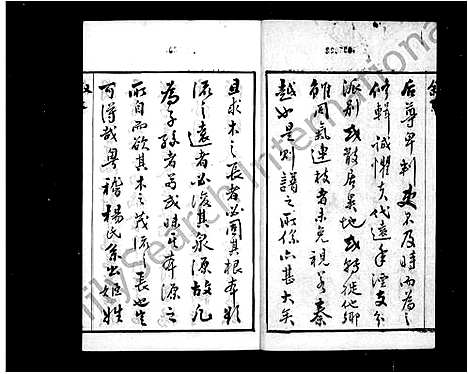 后尊卑判更不及時而為之
修輯誠懼夫代遠年湮支分
派別或散居異地或轉徙他鄉
雖同氣連枝者未免視若秦
越如是則譜之所係亦甚大矣
且求木之長者必固其根本欲
流之遠者必浚其泉源故凡
為子孫者可或昧其本源之
所自而欲其木之茂流之長也豈
可得哉粵稽楊氏系出姬姓
FamilySearch International